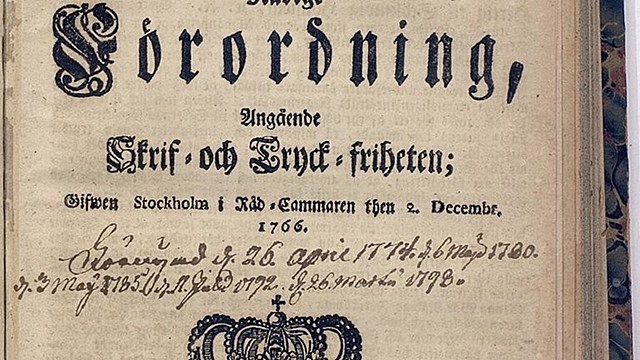 Förordning,
Angående
Skrif-och Tryck-friheten;
Gifwen Stockholm i Råd-Cammaren then 2. Decembr.
1766.
d. 26. april 1774. d. 6 Maji 1780.
d. 3 May 1785 1792. d. 26 Martii 1798.